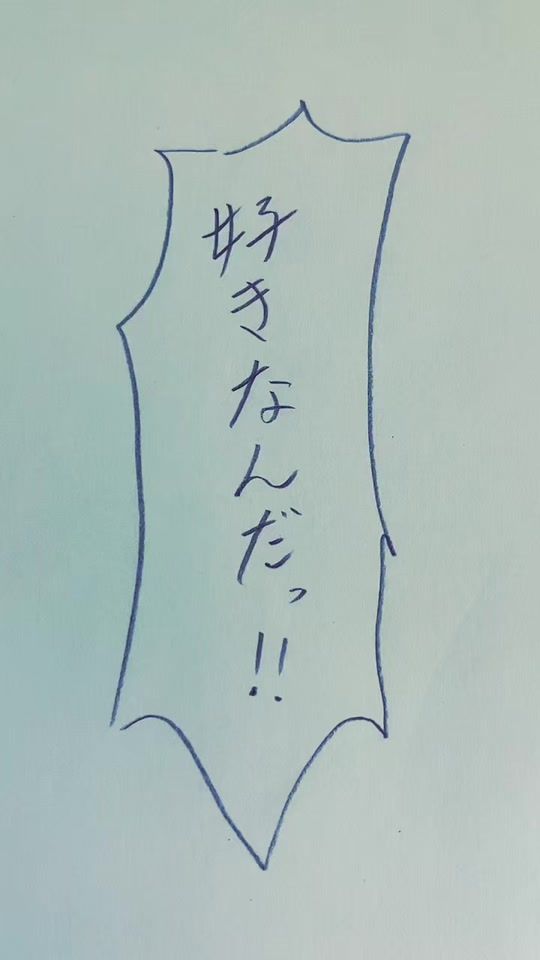 好きなんだっ!!